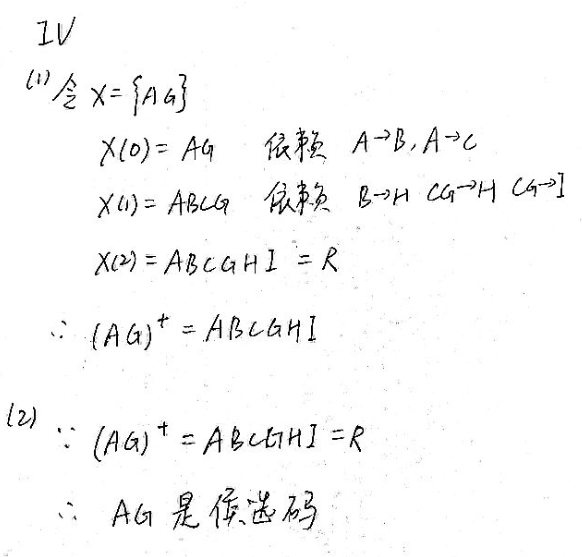 IV
(1) 令 X={AG}
X(0)=AG 依赖 A→B,A→C
X(1)=ABCG 依赖 B→H CG→H CG→I
X(2)=ABCGHI=R
∴ (AG)⁺=ABCGHI
(2) ∵ (AG)⁺=ABCGHI=R
∴ AG 是候选码